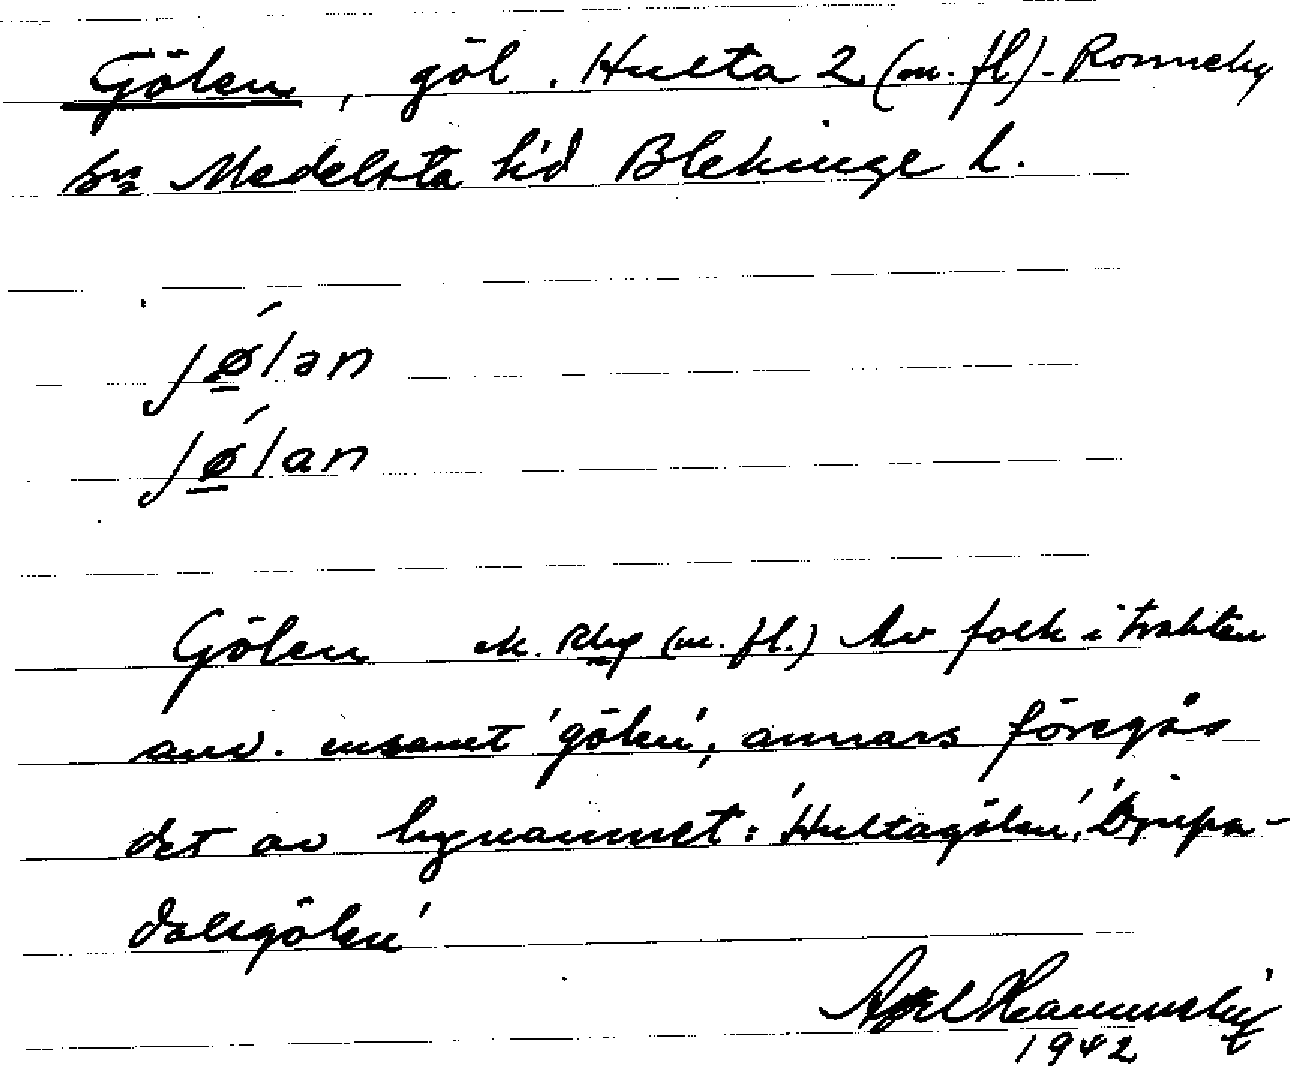 Gölen, göl. Hulta 2 (m. fl). Ronneby
sn Medelsta hd Blekinge l.
jǿ̲lən
jǿ̲lan
Gölen ek. Rby (m. fl.) Av folk i trakten
anv. ensamt 'gölen', annars föregås
det av bynamnet: 'Hultagölen', 'Djupa-
dalsgölen'
Axel Hammneby
1942